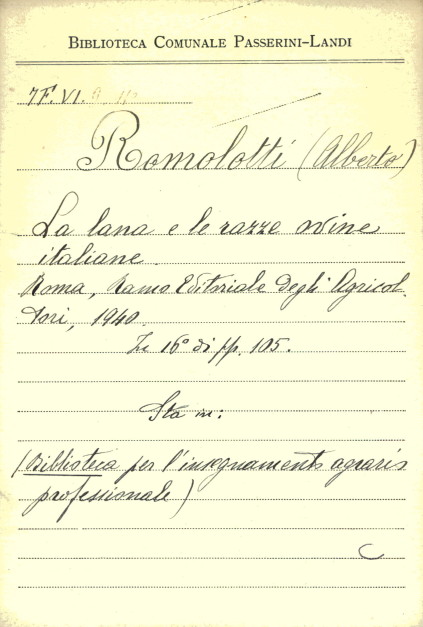 BIBLIOTECA COMUNALE PASSERINI-LANDI
7F. VI.
Romolotti (Alberto)
La lana e le razze ovine
italiane.
Roma, Ramo Editoriale degli Agricol-
tori, 1940.
In 16° di pp. 105.
Sta in:
(Biblioteca per l'insegnamento agrario
professionale)
C